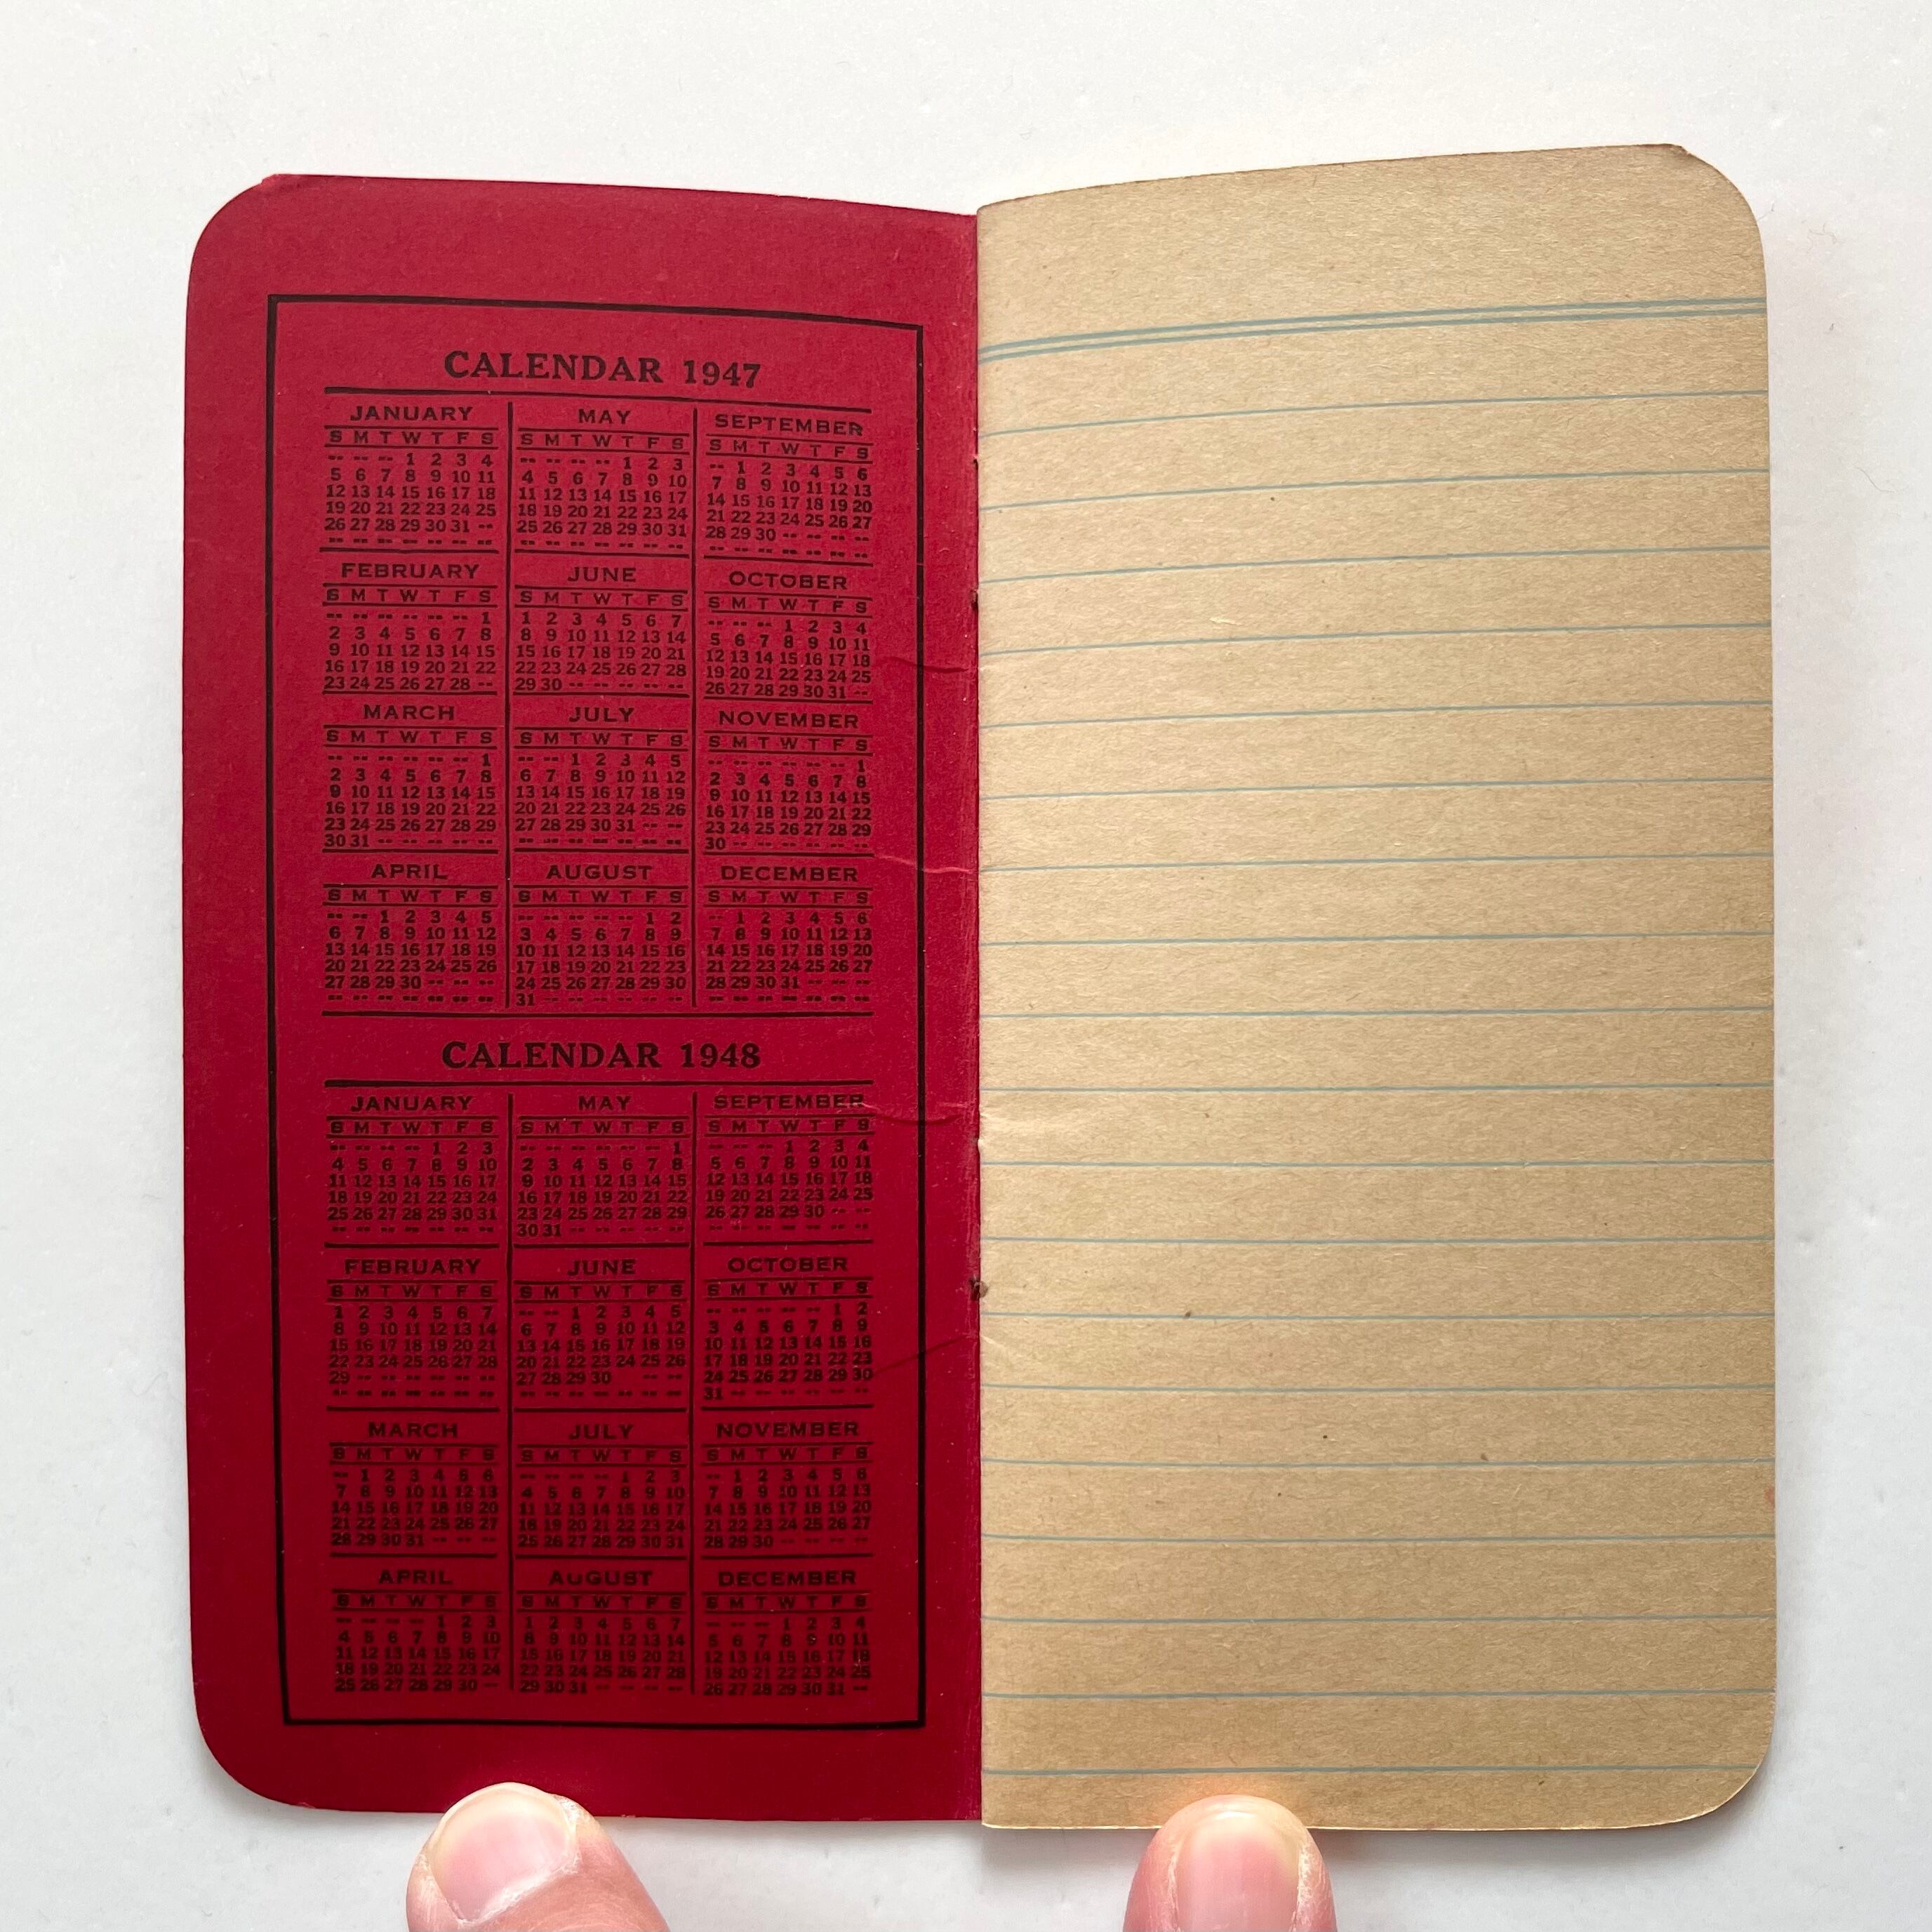 CALENDAR 1947
JANUARY
S M T W T F S
-- -- -- 1 2 3 4
5 6 7 8 9 10 11
12 13 14 15 16 17 18
19 20 21 22 23 24 25
26 27 28 29 30 31 --
-- -- -- -- -- -- --
FEBRUARY
S M T W T F S
-- -- -- -- -- -- 1
2 3 4 5 6 7 8
9 10 11 12 13 14 15
16 17 18 19 20 21 22
23 24 25 26 27 28 --
MARCH
S M T W T F S
-- -- -- -- -- -- 1
2 3 4 5 6 7 8
9 10 11 12 13 14 15
16 17 18 19 20 21 22
23 24 25 26 27 28 29
30 31 -- -- -- -- --
APRIL
S M T W T F S
-- -- 1 2 3 4 5
6 7 8 9 10 11 12
13 14 15 16 17 18 19
20 21 22 23 24 25 26
27 28 29 30 -- -- --
-- -- -- -- -- -- --
MAY
S M T W T F S
-- -- -- -- 1 2 3
4 5 6 7 8 9 10
11 12 13 14 15 16 17
18 19 20 21 22 23 24
25 26 27 28 29 30 31
-- -- -- -- -- -- --
JUNE
S M T W T F S
1 2 3 4 5 6 7
8 9 10 11 12 13 14
15 16 17 18 19 20 21
22 23 24 25 26 27 28
29 30 -- -- -- -- --
JULY
S M T W T F S
-- -- 1 2 3 4 5
6 7 8 9 10 11 12
13 14 15 16 17 18 19
20 21 22 23 24 25 26
27 28 29 30 31 -- --
-- -- -- -- -- -- --
AUGUST
S M T W T F S
-- -- -- -- -- 1 2
3 4 5 6 7 8 9
10 11 12 13 14 15 16
17 18 19 20 21 22 23
24 25 26 27 28 29 30
31 -- -- -- -- -- --
SEPTEMBER
S M T W T F S
-- 1 2 3 4 5 6
7 8 9 10 11 12 13
14 15 16 17 18 19 20
21 22 23 24 25 26 27
28 29 30 -- -- -- --
-- -- -- -- -- -- --
OCTOBER
S M T W T F S
-- -- -- 1 2 3 4
5 6 7 8 9 10 11
12 13 14 15 16 17 18
19 20 21 22 23 24 25
26 27 28 29 30 31 --
NOVEMBER
S M T W T F S
-- -- -- -- -- -- 1
2 3 4 5 6 7 8
9 10 11 12 13 14 15
16 17 18 19 20 21 22
23 24 25 26 27 28 29
30 -- -- -- -- -- --
DECEMBER
S M T W T F S
-- 1 2 3 4 5 6
7 8 9 10 11 12 13
14 15 16 17 18 19 20
21 22 23 24 25 26 27
28 29 30 31 -- -- --
-- -- -- -- -- -- --
CALENDAR 1948
JANUARY
S M T W T F S
-- -- -- -- 1 2 3
4 5 6 7 8 9 10
11 12 13 14 15 16 17
18 19 20 21 22 23 24
25 26 27 28 29 30 31
-- -- -- -- -- -- --
FEBRUARY
S M T W T F S
1 2 3 4 5 6 7
8 9 10 11 12 13 14
15 16 17 18 19 20 21
22 23 24 25 26 27 28
29 -- -- -- -- -- --
-- -- -- -- -- -- --
MARCH
S M T W T F S
-- 1 2 3 4 5 6
7 8 9 10 11 12 13
14 15 16 17 18 19 20
21 22 23 24 25 26 27
28 29 30 31 -- -- --
APRIL
S M T W T F S
-- -- -- -- 1 2 3
4 5 6 7 8 9 10
11 12 13 14 15 16 17
18 19 20 21 22 23 24
25 26 27 28 29 30 --
MAY
S M T W T F S
-- -- -- -- -- -- 1
2 3 4 5 6 7 8
9 10 11 12 13 14 15
16 17 18 19 20 21 22
23 24 25 26 27 28 29
30 31 -- -- -- -- --
JUNE
S M T W T F S
-- -- 1 2 3 4 5
6 7 8 9 10 11 12
13 14 15 16 17 18 19
20 21 22 23 24 25 26
27 28 29 30 -- --
-- -- -- -- -- -- --
JULY
S M T W T F S
-- -- -- -- 1 2 3
4 5 6 7 8 9 10
11 12 13 14 15 16 17
18 19 20 21 22 23 24
25 26 27 28 29 30 31
AUGUST
S M T W T F S
1 2 3 4 5 6 7
8 9 10 11 12 13 14
15 16 17 18 19 20 21
22 23 24 25 26 27 28
29 30 31 -- -- -- --
SEPTEMBER
S M T W T F S
-- -- -- 1 2 3 4
5 6 7 8 9 10 11
12 13 14 15 16 17 18
19 20 21 22 23 24 25
26 27 28 29 30 -- --
-- -- -- -- -- -- --
OCTOBER
S M T W T F S
-- -- -- -- -- 1 2
3 4 5 6 7 8 9
10 11 12 13 14 15 16
17 18 19 20 21 22 23
24 25 26 27 28 29 30
31 -- -- -- -- -- --
NOVEMBER
S M T W T F S
-- 1 2 3 4 5 6
7 8 9 10 11 12 13
14 15 16 17 18 19 20
21 22 23 24 25 26 27
28 29 30 -- -- -- --
DECEMBER
S M T W T F S
-- -- -- 1 2 3 4
5 6 7 8 9 10 11
12 13 14 15 16 17 18
19 20 21 22 23 24 25
26 27 28 29 30 31 --